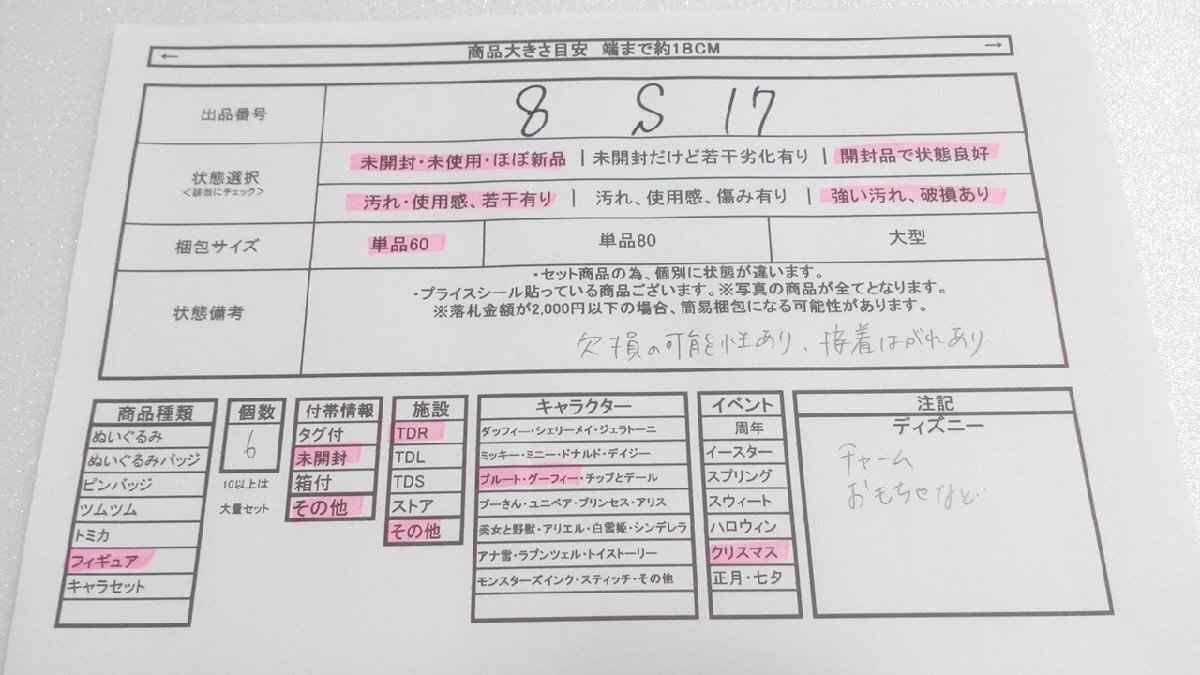 ← 商品大きさ目安 端まで約18CM →
出品番号 8 S 17
状態選択
<該当にチェック>
未開封・未使用・ほぼ新品 | 未開封だけど若干劣化有り | 開封品で状態良好
汚れ・使用感、若干有り | 汚れ、使用感、傷み有り | 強い汚れ、破損あり
梱包サイズ 単品60 単品80 大型
状態備考
・セット商品の為、個別に状態が違います。
・プライスシール貼っている商品ございます。※写真の商品が全てとなります。
※落札金額が2,000円以下の場合、簡易梱包になる可能性があります。
欠損の可能性あり、接着はがれあり
商品種類
ぬいぐるみ
ぬいぐるみバッジ
ピンバッジ
ツムツム
トミカ
フィギュア
キャラセット
個数
6
10以上は
大量セット
付帯情報
タグ付
未開封
箱付
その他
施設
TDR
TDL
TDS
ストア
その他
キャラクター
ダッフィー・シェリーメイ・ジェラトーニ
ミッキー・ミニー・ドナルド・デイジー
プルート・グーフィー・チップとデール
プーさん・ユニベア・プリンセス・アリス
美女と野獣・アリエル・白雪姫・シンデレラ
アナ雪・ラプンツェル・トイストーリー
モンスターズインク・スティッチ・その他
イベント
周年
イースター
スプリング
スウィート
ハロウィン
クリスマス
正月・七夕
注記
ディズニー
チャーム
おもちゃなど